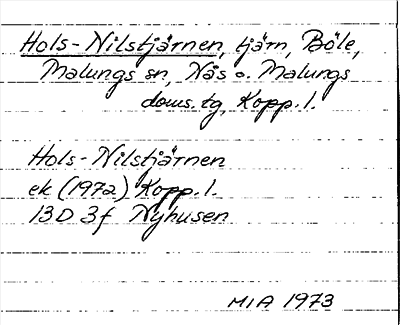 Hols-Nilstjärnen, tjärn, Böle,
Malungs sn, Nås o. Malungs
doms.tg, Kopp. l.
Hols-Nilstjärnen
ek (1972) Kopp. l.
13D 3f Nyhusen
MIA 1973